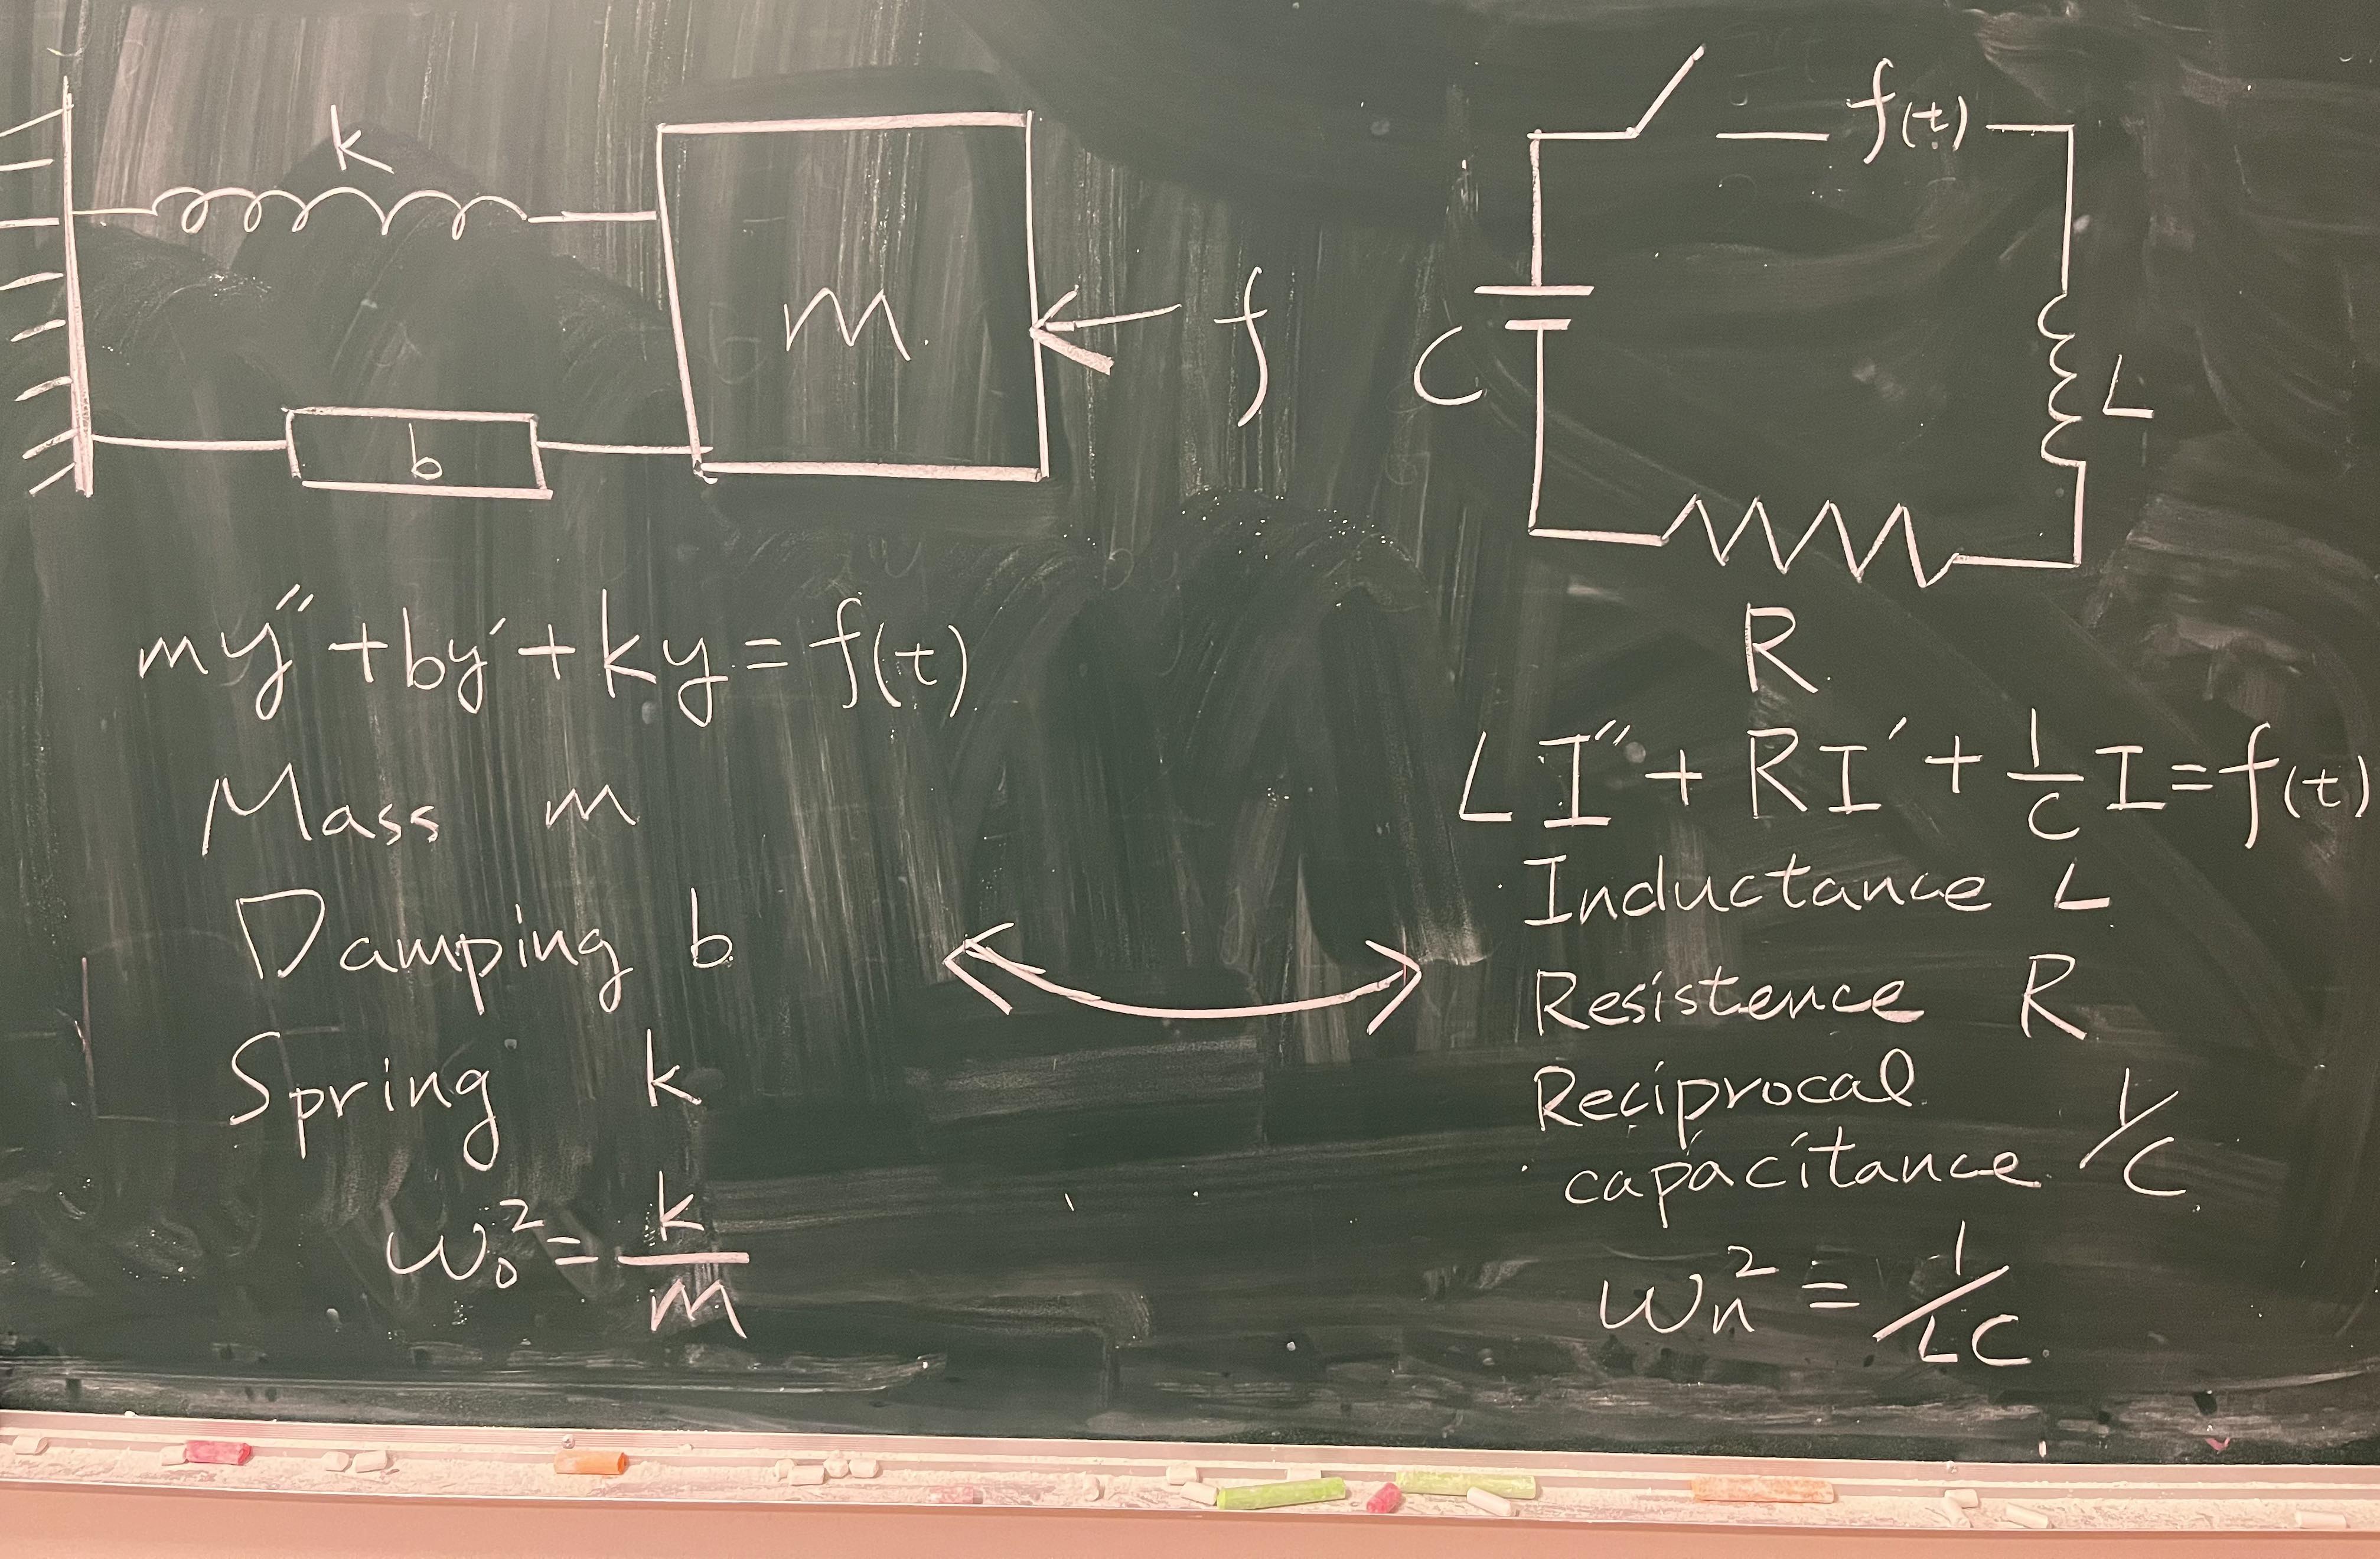 k
m
f
b
my″ + by′ + ky = f(t)
Mass m
Damping b
Spring k
ω₀² = k/m
f(t)
C
L
R
LI″ + RI′ + 1/C I = f(t)
Inductance L
Resistence R
Reciprocal
capacitance 1/C
ωₙ² = 1/LC